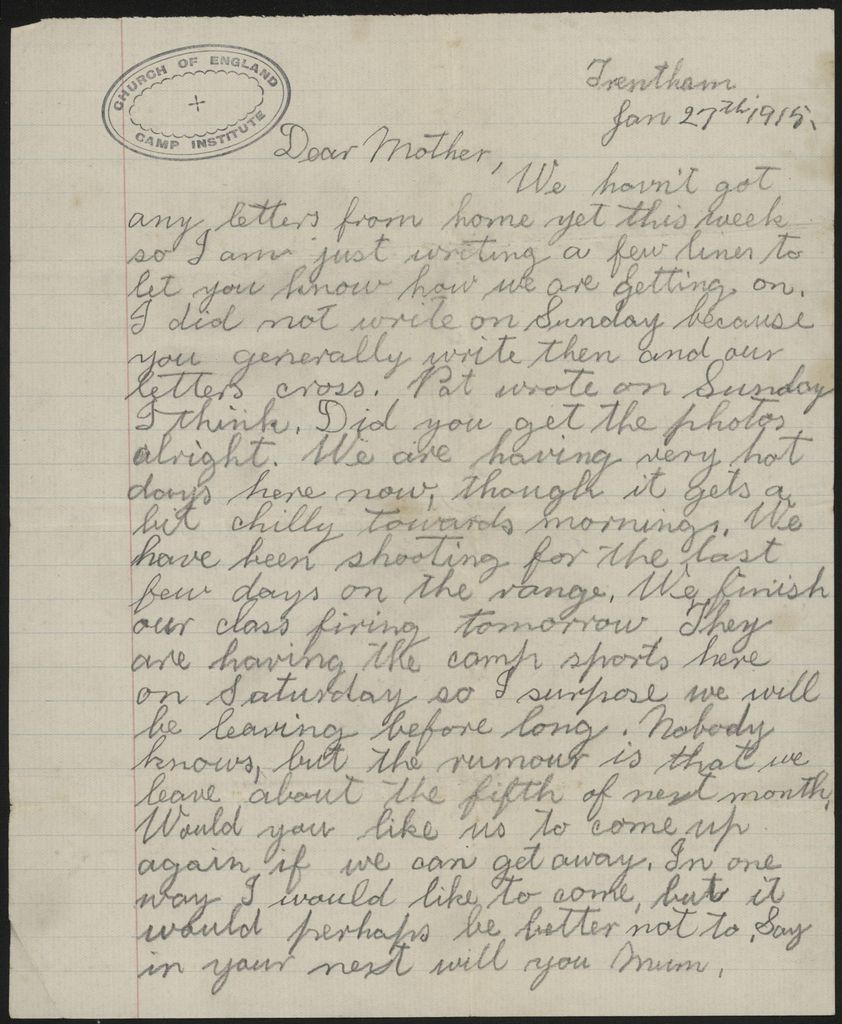 CHURCH OF ENGLAND
CAMP INSTITUTE
Trentham
Jan 27th 1915.
Dear Mother,
We havn't got
any letters from home yet this week
so I am just writing a few lines to
let you know how we are getting on.
I did not write on Sunday because
you generally write then and our
letters cross. Pat wrote on Sunday
I think. Did you get the photos
alright. We are having very hot
days here now, though it gets a
bit chilly towards morning. We
have been shooting for the last
few days on the range. We finish
our class firing tomorrow. They
are having the camp sports here
on Saturday so I surpose we will
be leaving before long. Nobody
knows, but the rumour is that we
leave about the fifth of next month.
Would you like us to come up
again if we can get away. In one
way I would like to come, but it
would perhaps be better not to. Say
in your next will you Mum.